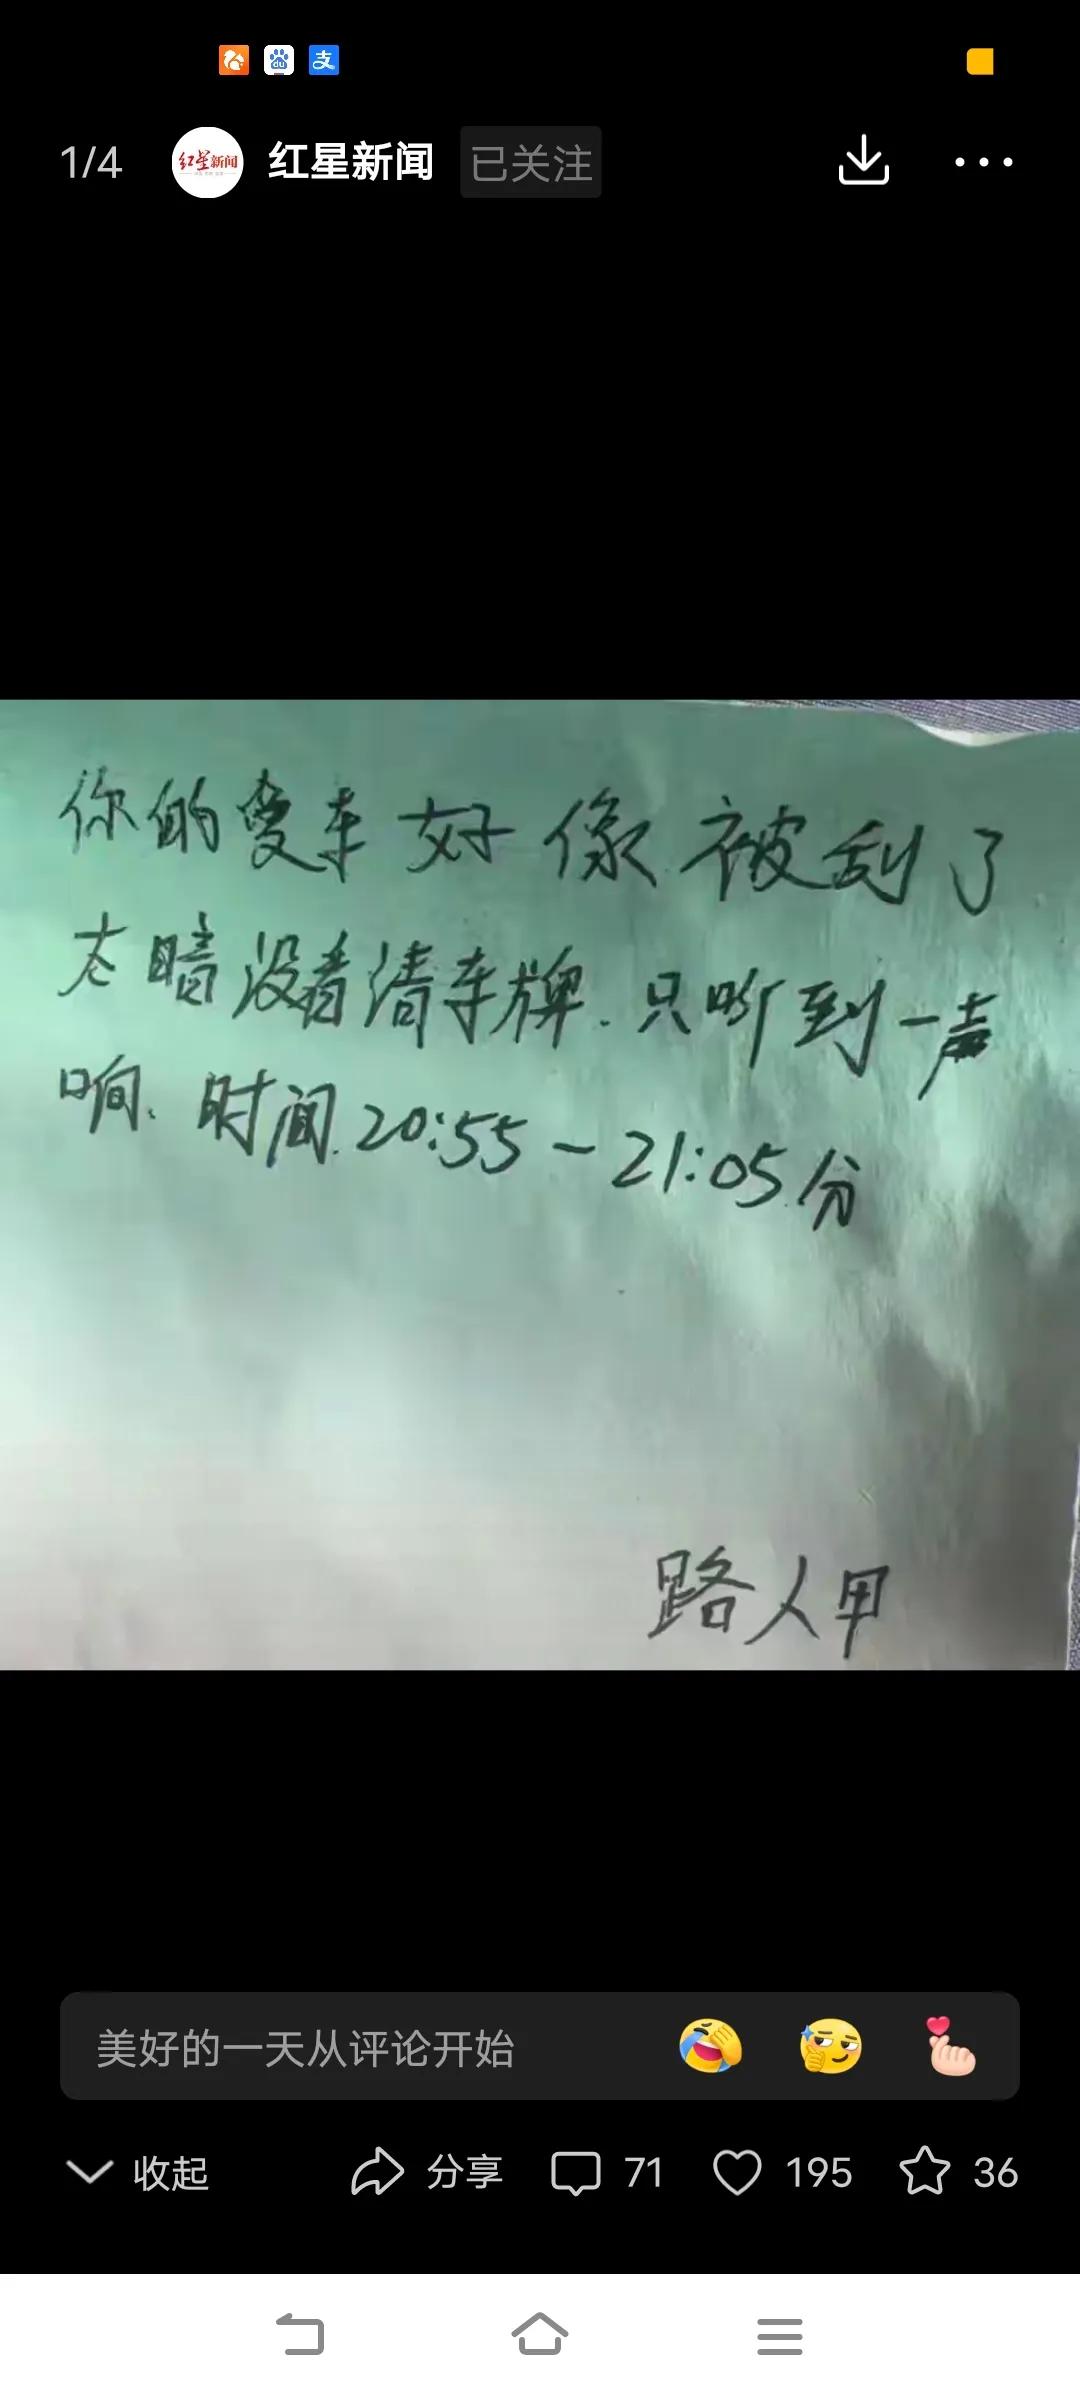 1/4 红星新闻 红星新闻 已关注
你的爱车好像被刮了
太暗没看清车牌.只听到一声
响、时间.20:55-21:05.分
路人甲
美好的一天从评论开始
收起 分享 71 195 36